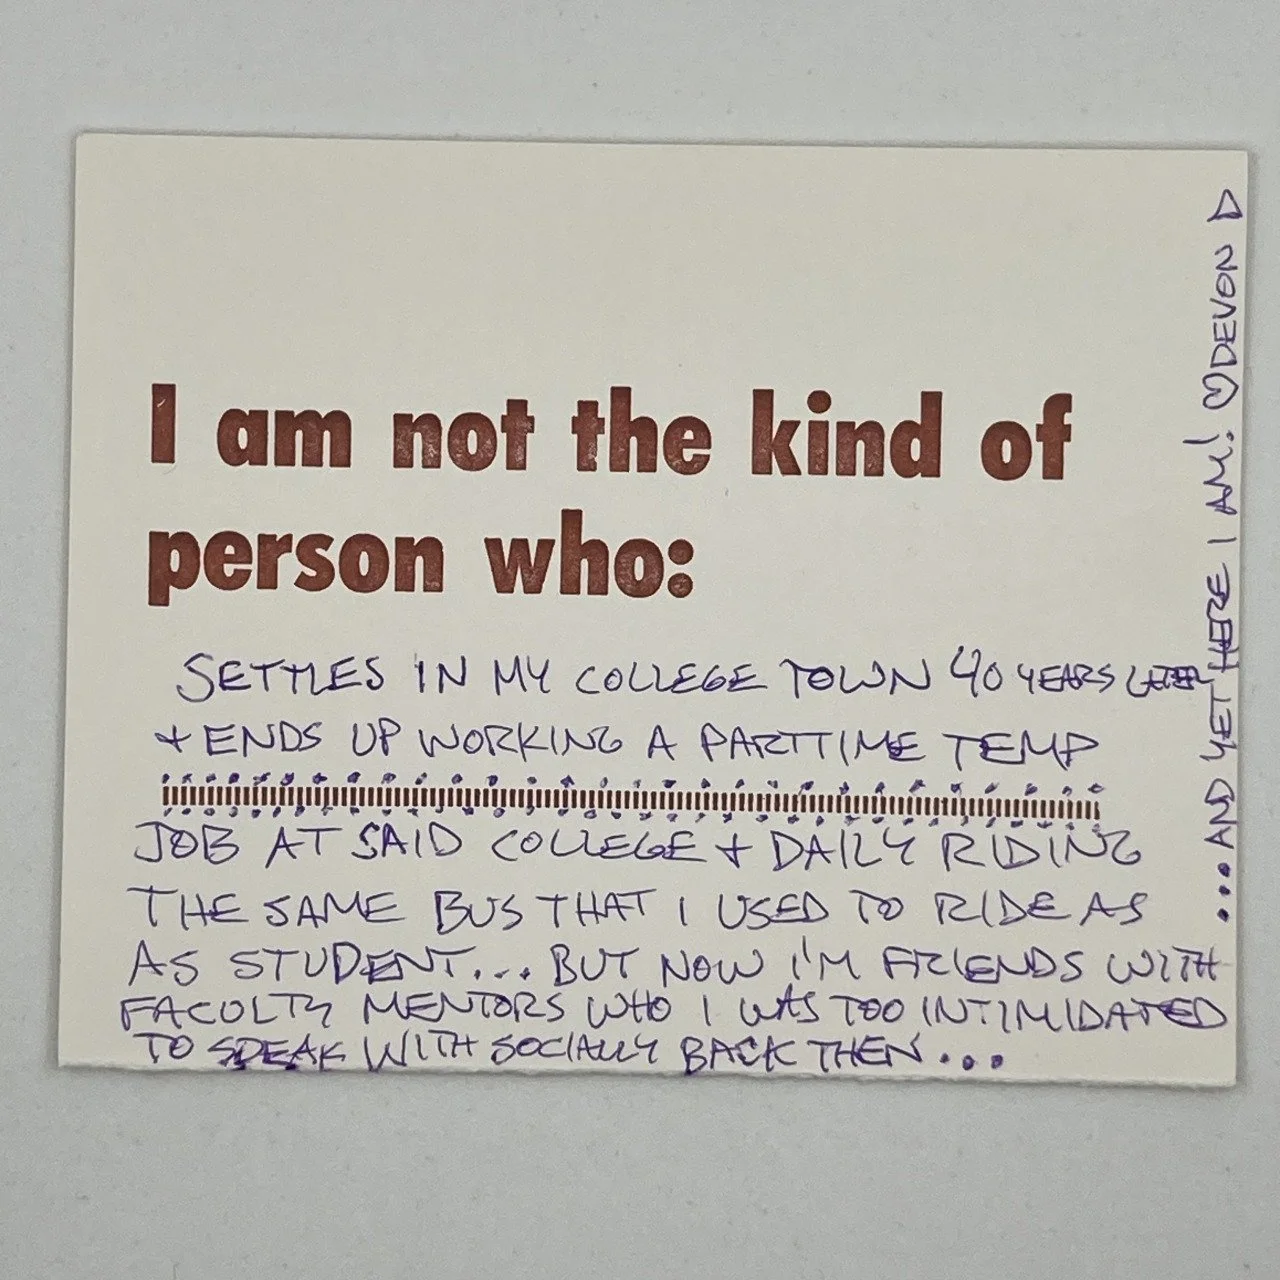 I am not the kind of
person who:
SETTLES IN MY COLLEGE TOWN 40 YEARS LATER
+ ENDS UP WORKING A PARTTIME TEMP
JOB AT SAID COLLEGE + DAILY RIDING
THE SAME BUS THAT I USED TO RIDE AS
AS STUDENT... BUT NOW I'M FRIENDS WITH
FACULTY MENTORS WHO I WAS TOO INTIMIDATED
TO SPEAK WITH SOCIALLY BACK THEN...
...AND YET HERE I AM! ♡DEVON D